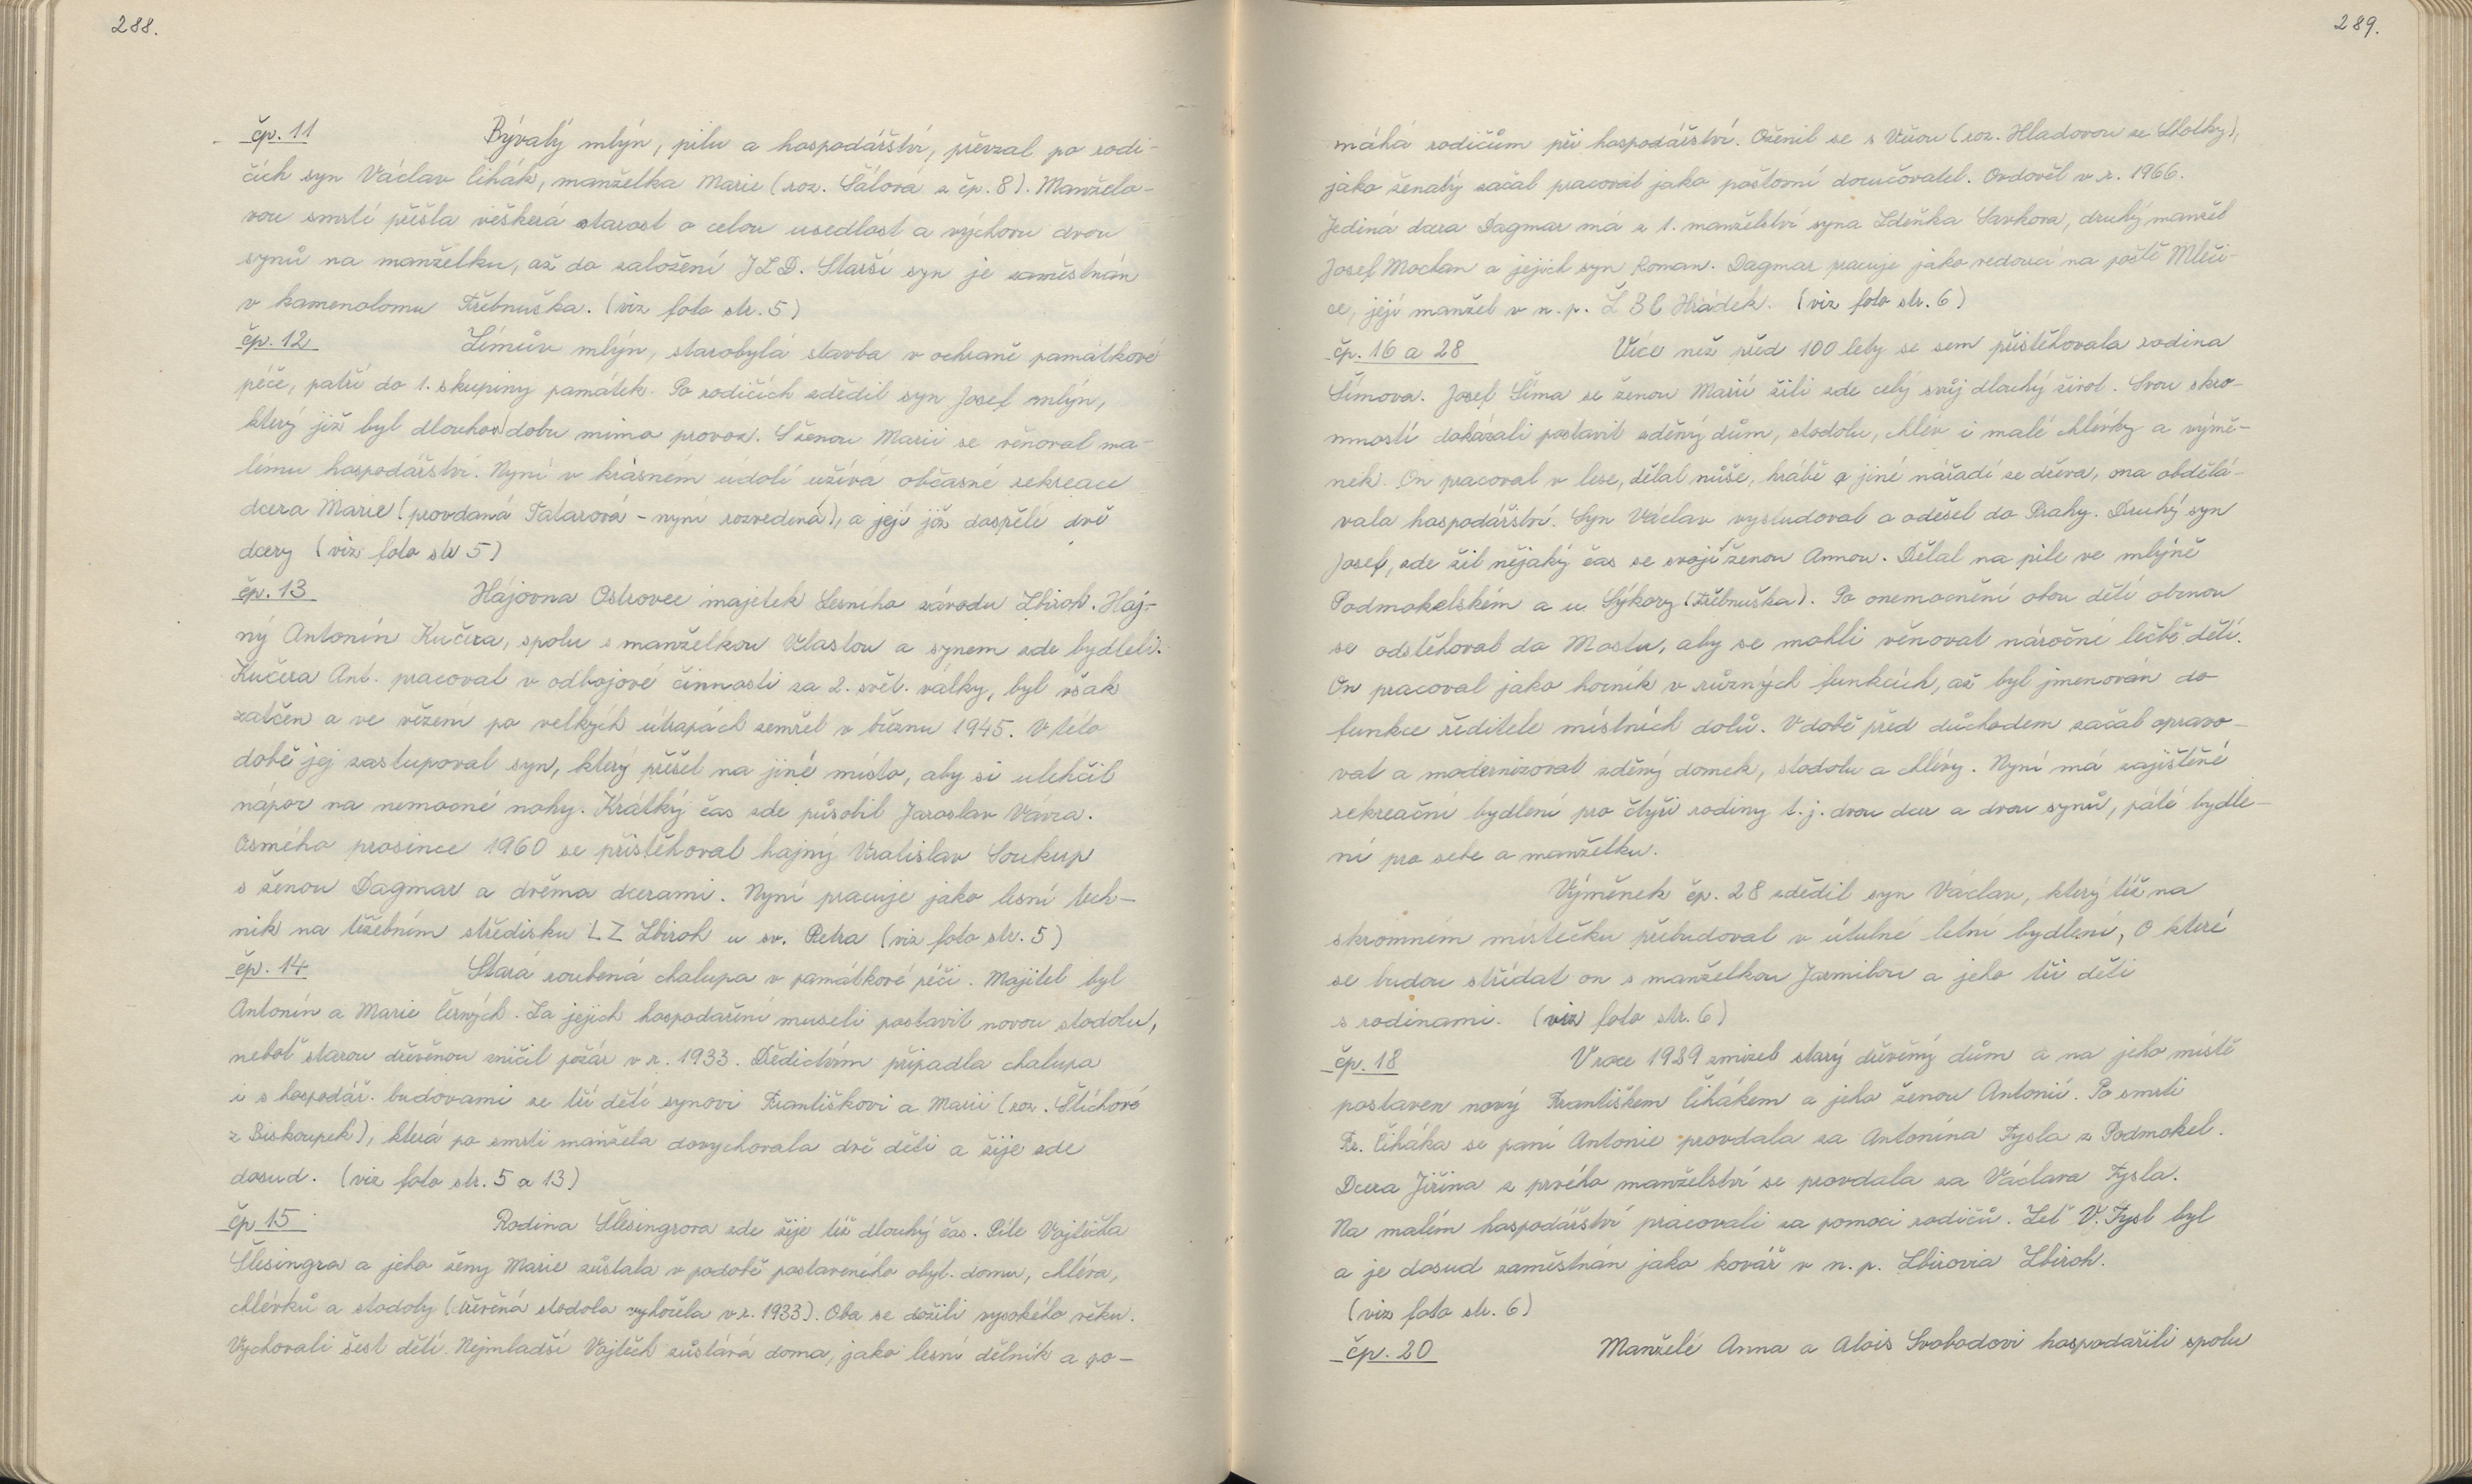 288.
čp. 11 Bývalý mlýn, pilu a hospodářství, převzal po rodi-
čích syn Václav Čihák, manželka Marie (roz. Sálová z čp. 8). Manželo-
vou smrtí přešla veškerá starost o celou usedlost a výchovu dvou
synů na manželku, až do založení JZD. Starší syn je zaměstnán
v kamenolomu Třebnuška. (viz foto str. 5)
čp. 12 Šímův mlýn, starobylá stavba v ochraně památkové
péče, patří do 1. skupiny památek. Po rodičích zdědil syn Josef mlýn,
který již byl dlouhou dobu mimo provoz. S ženou Marií se věnoval ma-
lému hospodářství. Nyní v krásném údolí užívá občasné rekreace
dcera Marie (provdaná Tatarová - nyní rozvedená), a její již dospělé dvě
dcery (viz foto str 5)
čp. 13 Hájovna Ostrovec majetek Lesního závodu Zbiroh. Haj-
ný Antonín Kučera, spolu s manželkou Vlastou a synem zde bydleli.
Kučera Ant. pracoval v odbojové činnosti za 2. svět. války, byl však
zatčen a ve vězení po velkých útrapách zemřel v březnu 1945. V této
době jej zastupoval syn, který přešel na jiné místo, aby si ulehčil
nápor na nemocné nohy. Krátký čas zde působil Jaroslav Vávra.
Osmého prosince 1960 se přistěhoval hajný Vratislav Soukup
s ženou Dagmar a dvěma dcerami. Nyní pracuje jako lesní tech-
nik na těžebním středisku LZ Zbiroh u sv. Petra (viz foto str. 5)
čp. 14 Stará roubená chalupa v památkové péči. Majitel byl
Antonín a Marie Černých. Za jejich hospodaření museli postavit novou stodolu,
neboť starou dřevěnou zničil požár v r. 1933. Dědictvím připadla chalupa
i s hospodář. budovami ze tří dětí synovi Františkovi a Marii (roz. Štichové
z Biskoupek), která po smrti manžela dovychovala dvě děti a žije zde
dosud. (viz foto str. 5 a 13)
čp 15 Rodina Šlesingrova zde žije též dlouhý čas. Píle Vojtěcha
Šlesingra a jeho ženy Marie zůstala v podobě postaveného obyt. domu, chléva,
chlévků a stodoly (dřevěná stodola vyhořela v r. 1933). Oba se dožili vysokého věku.
Vychovali šest dětí. Nejmladší Vojtěch zůstává doma, jako lesní dělník a po-
289.
máhá rodičům při hospodářství. Oženil se s Věrou (roz. Hladovou ze Lhotky),
jako ženatý začal pracovat jako poštovní doručovatel. Ovdověl v r. 1966.
Jediná dcera Dagmar má z 1. manželství syna Zdeňka Savkova, druhý manžel
Josef Moctan a jejich syn Roman. Dagmar pracuje jako vedoucí na poště Mleči-
ce, její manžel v n. p. ZBC Hrádek. (viz foto str. 6)
čp. 16 a 28 Více než před 100 lety se sem přistěhovala rodina
Šímova. Josef Šíma se ženou Marií žili zde celý svůj dlouhý život. Svou skro-
mností dokázali postavit zděný dům, stodolu, chlév i malé chlévky a výmě-
nek. On pracoval v lese, dělal nůše, hrábě a jiné nářadí ze dřeva, ona obdělá-
vala hospodářství. Syn Václav vystudoval a odešel do Prahy. Druhý syn
Josef, zde žil nějaký čas se svojí ženou Annou. Dělal na pile ve mlýně
Podmokelském a u Sýkory (Třebnuška). Po onemocnění obou dětí obrnou
se odstěhoval do Mostu, aby se mohli věnovat náročné léčbě dětí.
On pracoval jako horník v různých funkcích, až byl jmenován do
funkce ředitele místních dolů. V době před důchodem začal opravo-
vat a modernizovat zděný domek, stodolu a chlévy. Nyní má zajištěné
rekreační bydlení pro čtyři rodiny t. j. dvou dcer a dvou synů, páté bydle-
ní pro sebe a manželku.
Výměnek čp. 28 zdědil syn Václav, který též na
skromném místečku přebudoval v útulné letní bydlení, o které
se budou střídat on s manželkou Jarmilou a jeho tři děti
s rodinami. (viz foto str. 6)
čp. 18 V roce 1939 zmizel starý dřevěný dům a na jeho místě
postaven nový Františkem Čihákem a jeho ženou Antonií. Po smrti
Fr. Čiháka se paní Antonie provdala za Antonína Fysla z Podmokel.
Dcera Jiřina z prvého manželství se provdala za Václava Fysla.
Na malém hospodářství pracovali za pomoci rodičů. Zeť V. Fysl byl
a je dosud zaměstnán jako kovář v n. p. Zbirovia Zbiroh.
(viz foto str. 6)
čp. 20 Manželé Anna a Alois Svobodovi hospodařili spolu